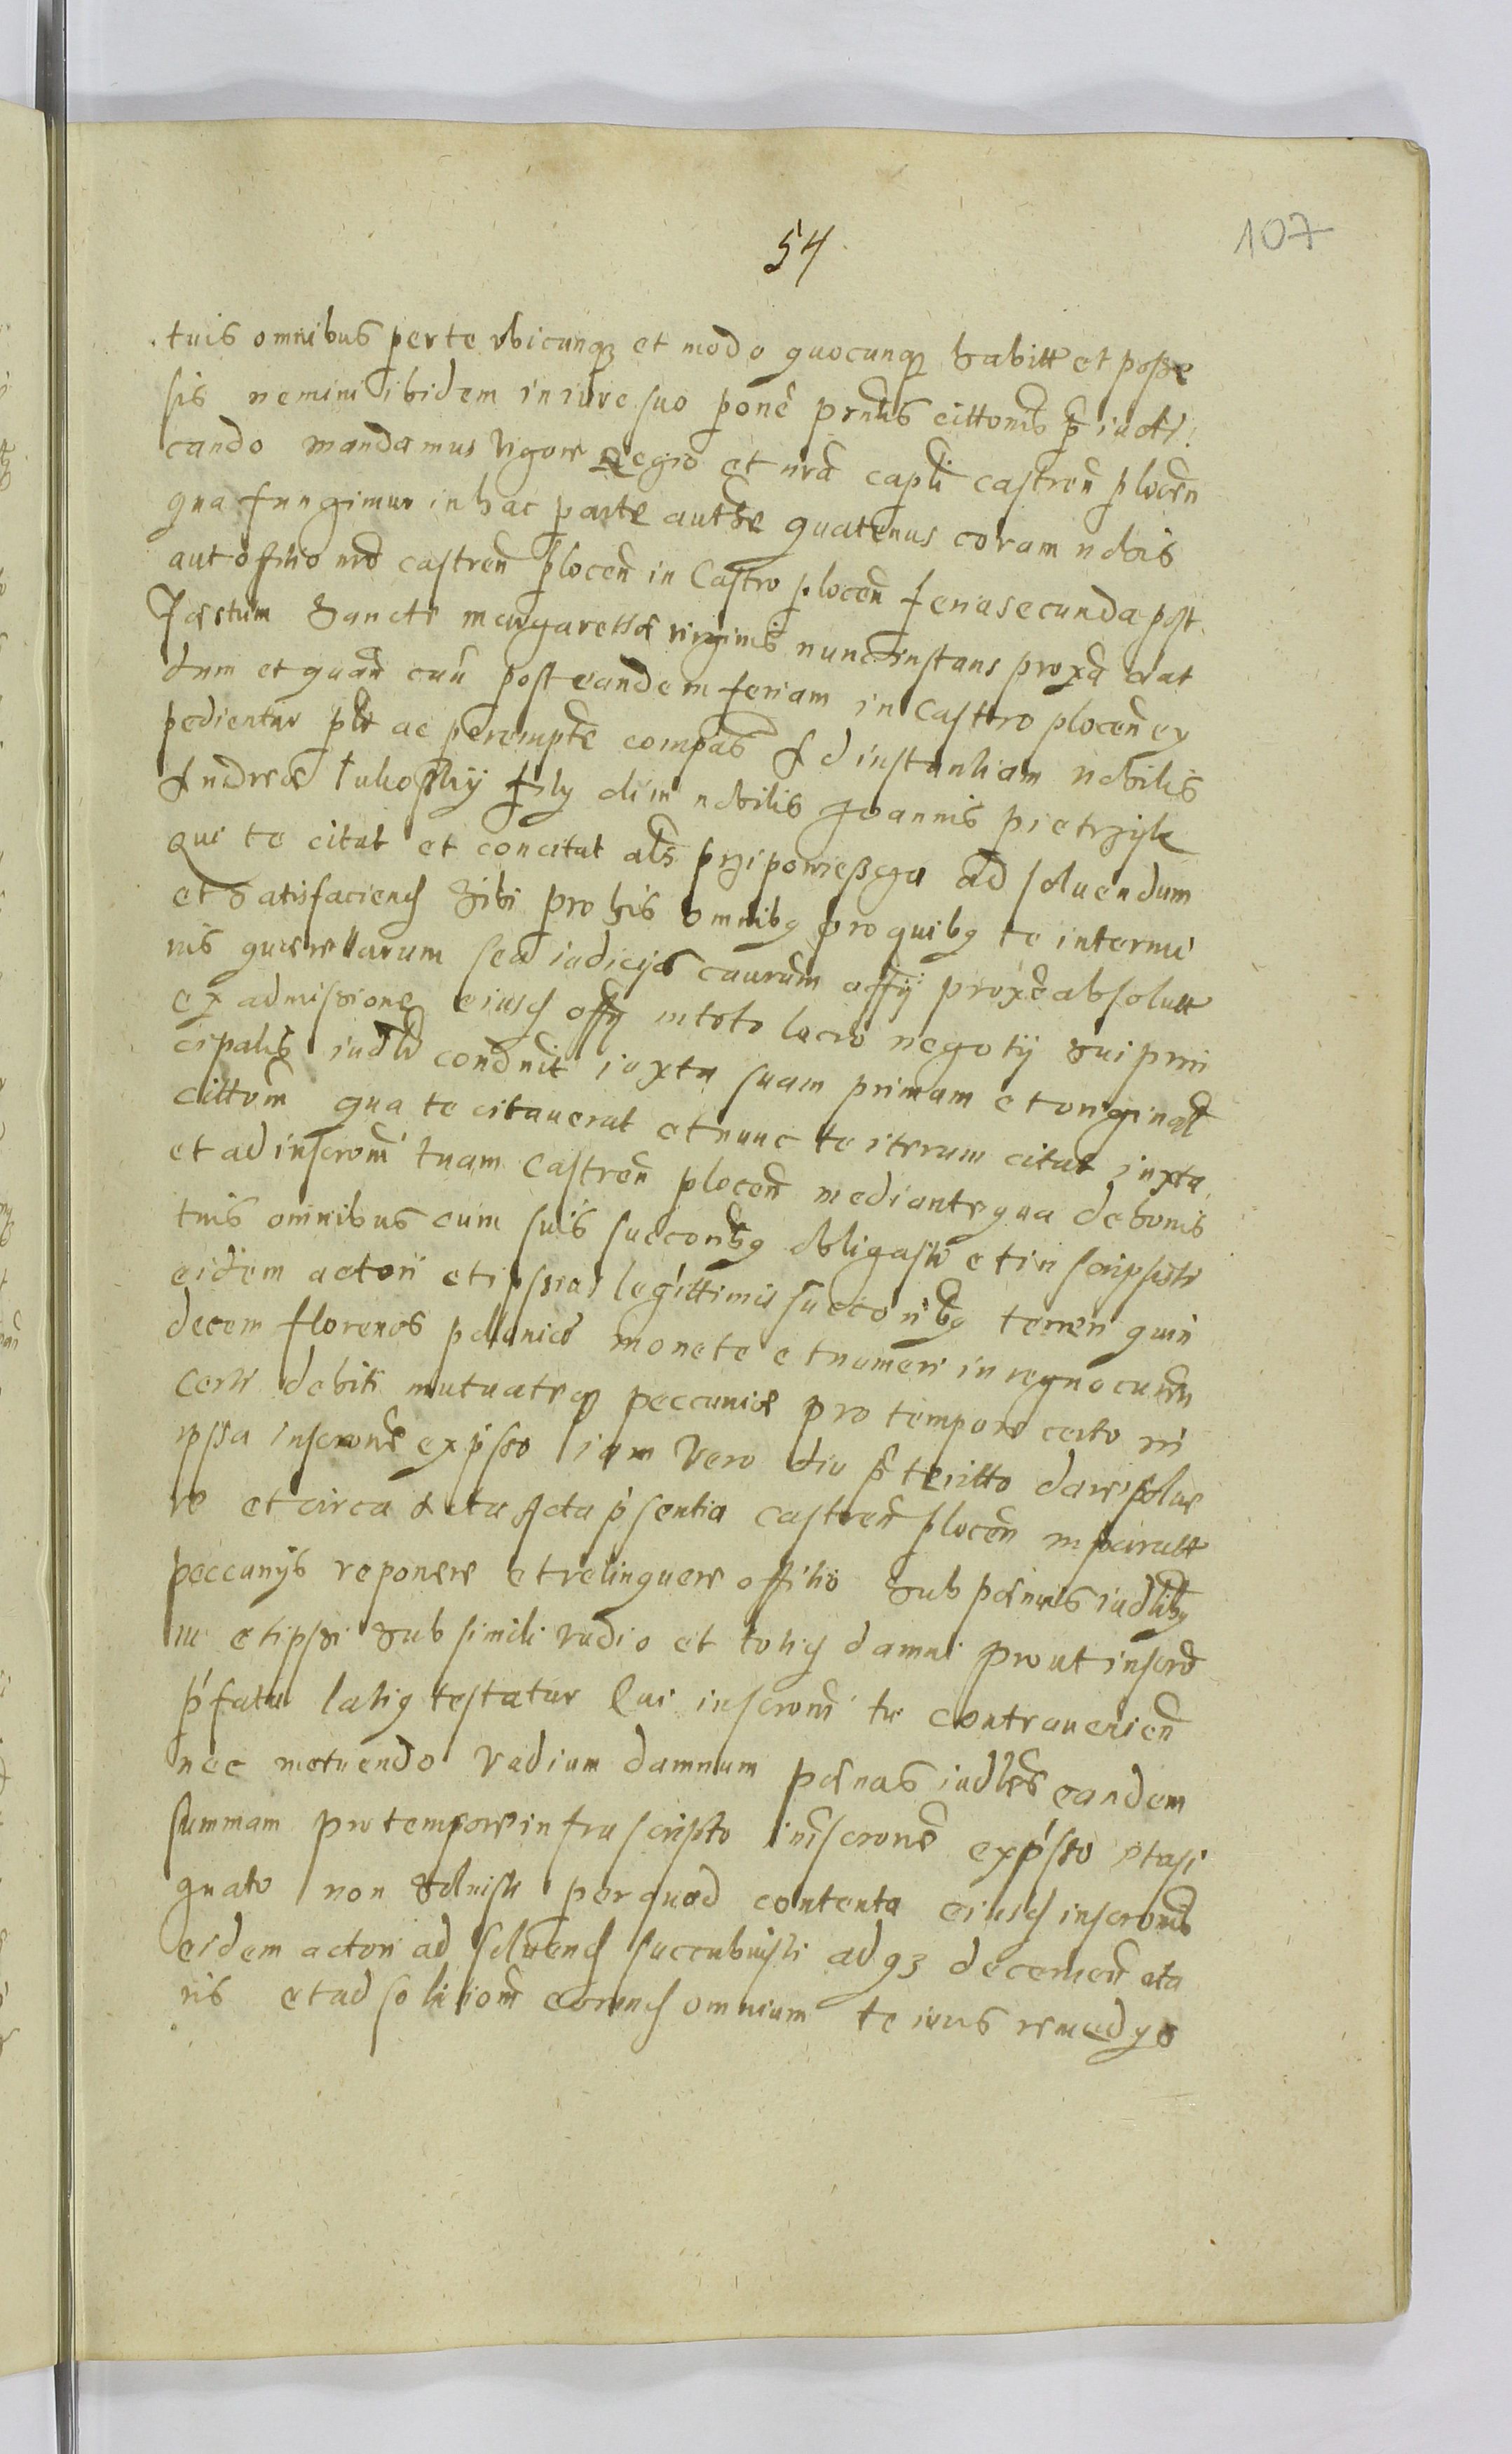 54
107
tuis omnibus per te vbicunq3 et modo quocunq3 habitt et posse
sis nemini ibidem in iure suo ponē prntis cittonis p̄ iudi
cando mandamus vigore Regio et nrā capli castren plocen
qua fungimur in hac parte authe quatenus coram nobis
aut offitio nrō castren plocen in Castro plocen feria secunda post
Festum Sancte margarethæ virginis nunc instans proxa dat
dum et quan cau post eandem feriam in Castro plocen ex
pedientur plr ac perempte compas Ad instantiam nobilis
Andreæ filij olim nobilis Joannis pietrzyk
Qui te citat et concitat als przipowieszcza ad soluendum
et Satisfaciend Sibi pro his omnibg pro quibg te in termi
nis querellarum seu iudicijs caurum offij proxe absolutt
ex admissione eiusd offij in toto lucro negotij Sui prin
cipalis iudli condnit iuxta suam primam et originalē
cittom qua te citauerat et nunc te iterum citat iuxta
et ad inscrom tuam Castren plocen mediante qua de bonis
tuis omnibus cum suis succoribg obligasti et in scripsisti
eidem actori et ipssius legittimis succoribg teneri quin
decem florenos polonice monete et numeri in regno curen
certi debiti mutuateq3 peccuniæ pro tempore certo in
ipssa inscrone expsso iam vero diu p̄teritto dare solue
re et circa acta p̄sentia castren plocen in paratt
peccunijs reponere et relinquere offitio Sub pænis iudlibg
ni et ipssi Sub simili vadio et totig damni prout inscro
p̄fata latig testatur Qui inscroni tuæ contraueniēn
nec metuendo vadium damnum pænas iudles eandem
summam pro tempore infra scripto inscrone expsso et asi
gnato non Soluisti per quod contenta eiusd inscronis
eidem actori ad soluend succubuisti ad q3 decernen
ris et ad solutiom eorund omnium te iuris remedys